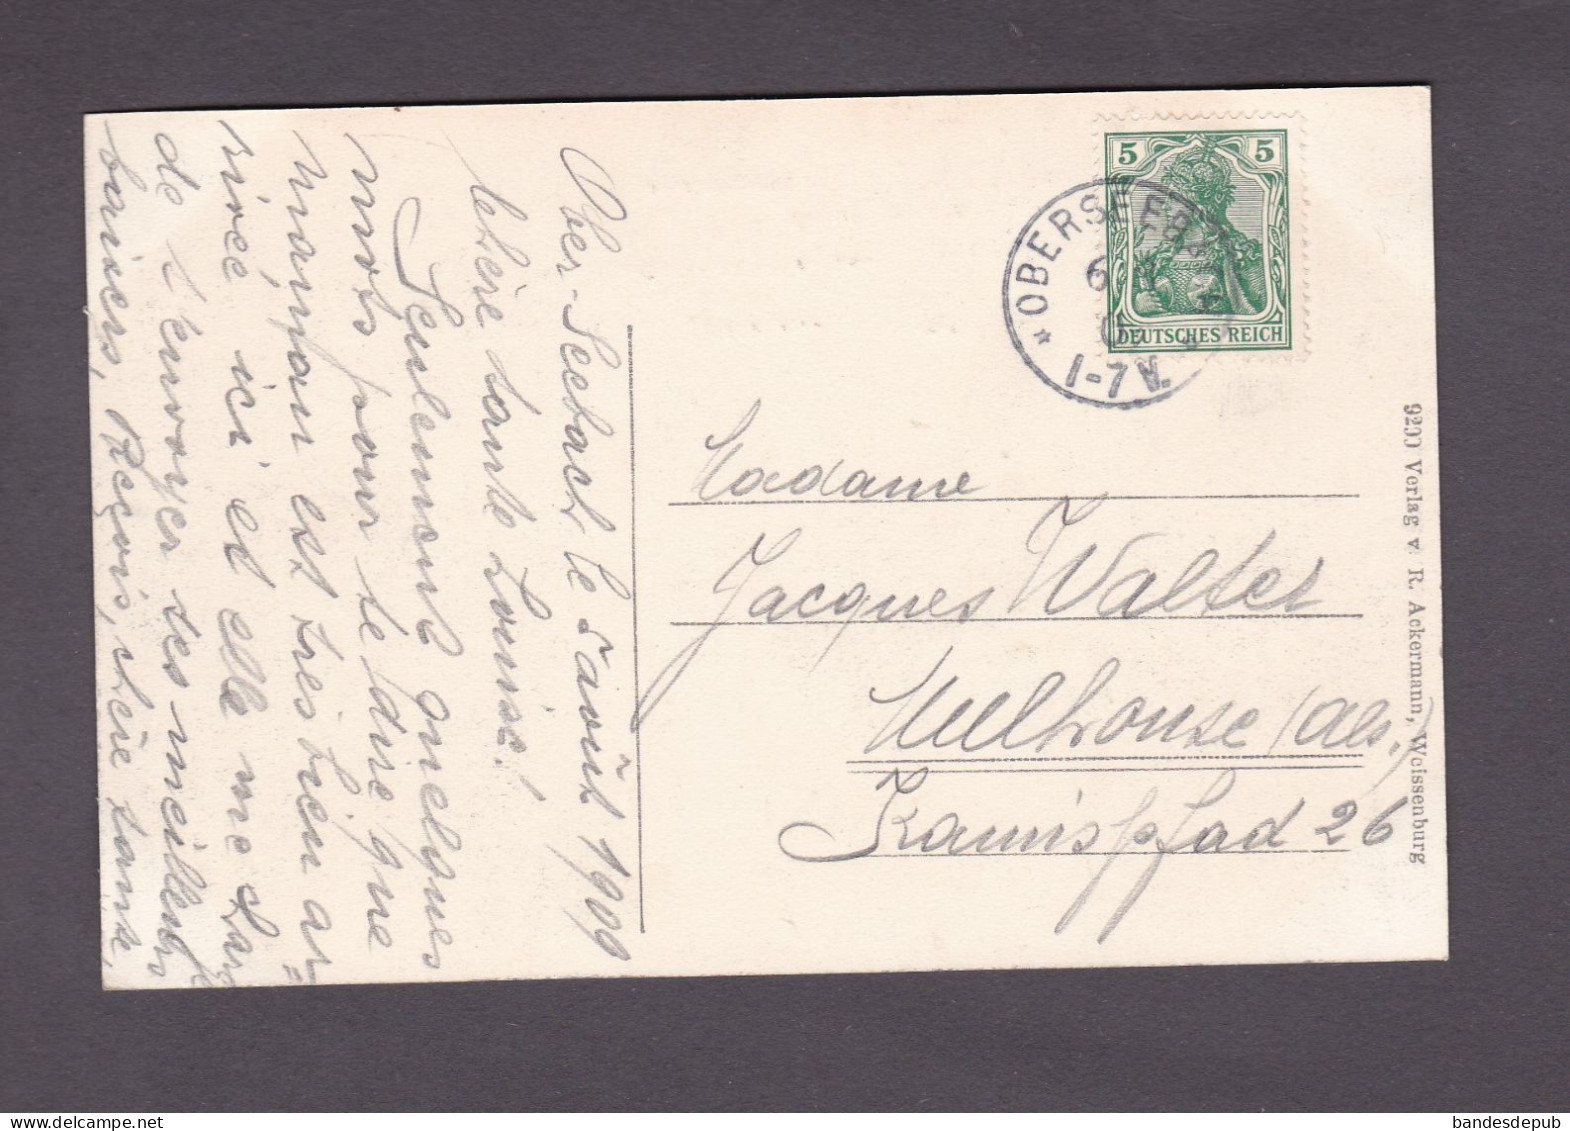 Ober-Seebach le 5 août 1909
chère tante Louise!
Seulement quelques
mots pour te dire que
maman est très bien ar=
rivée ici et elle me charge
de t'envoyer ses meilleurs
baisers, Reçois, chère tante,
5 5
DEUTSCHES REICH
* OBERSEEBACH
1-7 V.
Madame
Jacques Walter
Mulhouse (Als.)
26
9200 Verlag v. R. Ackermann, Weissenburg
bandesdepub